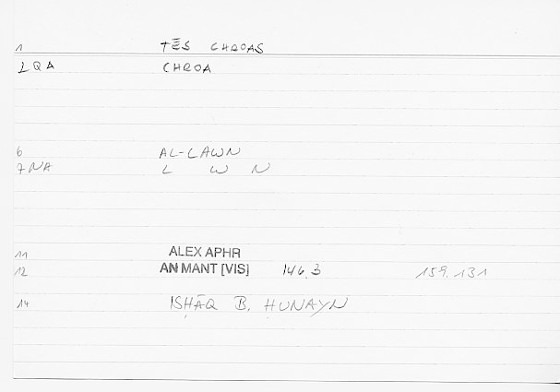 1 TĒS CHROAS
2QA CHROA
6 AL-LAWN
7NA L W N
11 ALEX APHR
12 AN MANT [VIS] 146.3 159.131
14 ISḤĀQ B. ḤUNAYN